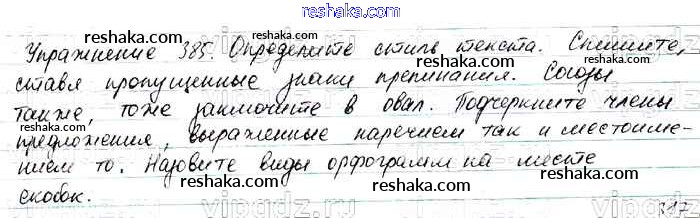 reshaka.com
Упражнение 385. Определите стиль текста. Спишите,
reshaka.com reshaka.com
ставя пропущенные знаки препинания. Союзы
также, тоже заключите в овал. Подчеркните члены
reshaka.com reshaka.com
предложения, выраженные наречием так и местоиме-
нием то. Назовите виды орфограмм на месте
reshaka.com reshaka.com
скобок.
reshaka.com
317